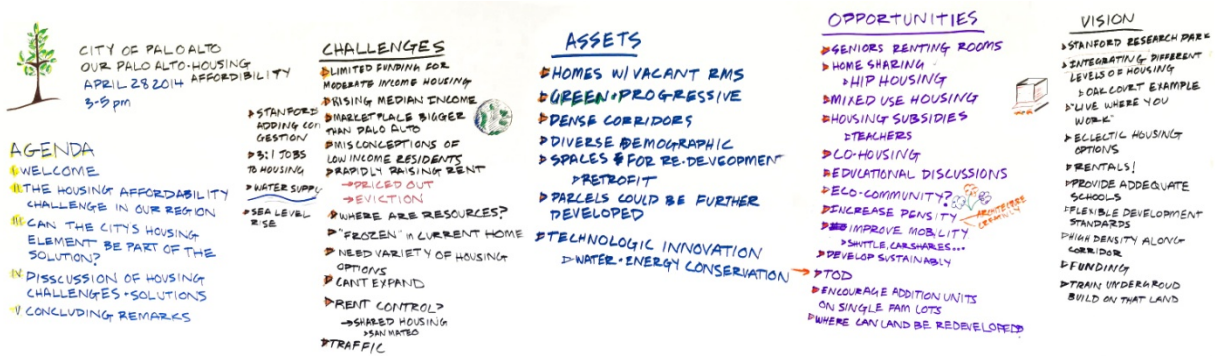 CITY OF PALO ALTO
OUR PALO ALTO-HOUSING
AFFORDIBILITY
APRIL 28 2014
3-5 pm
AGENDA
I WELCOME
II THE HOUSING AFFORDABILITY
CHALLENGE IN OUR REGION
III CAN THE CITY'S HOUSING
ELEMENT BE PART OF THE
SOLUTION?
IV DISSCUSSION OF HOUSING
CHALLENGES + SOLUTIONS
V CONCLUDING REMARKS
STANFORD
ADDING CON
GESTION
3:1 JOBS
TO HOUSING
WATER SUPPLY
SEA LEVEL
RISE
CHALLENGES
LIMITED FUNDING FOR
MODERATE INCOME HOUSING
RISING MEDIAN INCOME
MARKETPLACE BIGGER
THAN PALO ALTO
MISCONCEPTIONS OF
LOW INCOME RESIDENTS
RAPIDLY RAISING RENT
→PRICED OUT
→EVICTION
WHERE ARE RESOURCES?
"FROZEN" IN CURRENT HOME
NEED VARIETY OF HOUSING
OPTIONS
CANT EXPAND
RENT CONTROL?
→SHARED HOUSING
>SAN MATEO
TRAFFIC
ASSETS
HOMES W/VACANT RMS
GREEN + PROGRESSIVE
DENSE CORRIDORS
DIVERSE DEMOGRAPHIC
SPACES FOR RE-DEVEOPMENT
RETROFIT
PARCELS COULD BE FURTHER
DEVELOPED
TECHNOLOGIC INNOVATION
WATER + ENERGY CONSERVATION
OPPORTUNITIES
SENIORS RENTING ROOMS
HOME SHARING
HIP HOUSING
MIXED USE HOUSING
HOUSING SUBSIDIES
TEACHERS
CO-HOUSING
EDUCATIONAL DISCUSSIONS
ECO-COMMUNITY?
INCREASE DENSITY
ARCHITECTURE
CREATIVITY
IMPROVE MOBILITY
SHUTTLE, CARSHARES...
DEVELOP SUSTAINABLY
→ TOD
ENCOURAGE ADDITION UNITS
ON SINGLE FAM LOTS
WHERE CAN LAND BE REDEVELOPED
VISION
STANFORD RESEARCH PARK
INTEGRATING DIFFERENT
LEVELS OF HOUSING
OAK COURT EXAMPLE
"LIVE WHERE YOU
WORK"
ECLECTIC HOUSING
OPTIONS
RENTALS!
PROVIDE ADDEQUATE
SCHOOLS
FLEXIBLE DEVELOPMENT
STANDARDS
HIGH DENSITY ALONG
CORRIDOR
FUNDING
TRAIN UNDERGROUD
BUILD ON THAT LAND